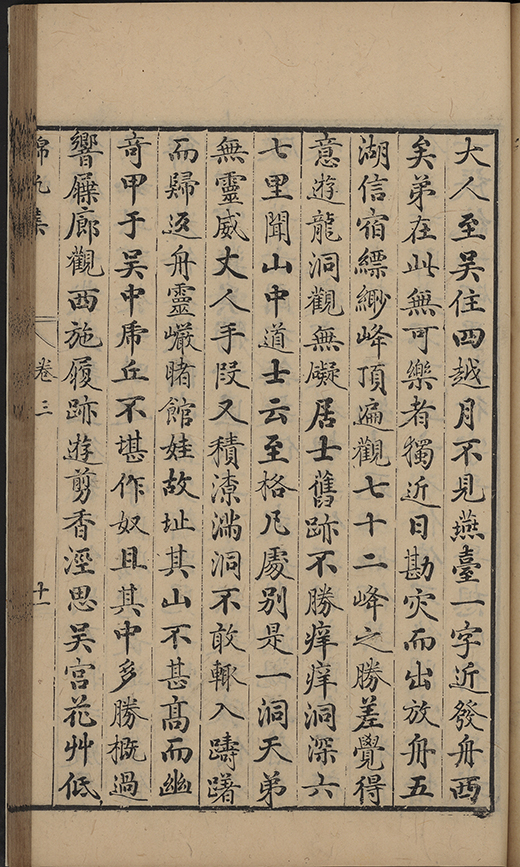 大人至吳住四越月不見燕臺一字近發舟西
矣弟在此無可樂者獨近日勘灾而出放舟五
湖信宿縹緲峰頂遍觀七十二峰之勝差覺得
意遊龍洞觀無礙居士舊跡不勝痒痒洞深六
七里聞山中道士云至格凡處別是一洞天弟
無靈威丈人手段又積潦滿洞不敢輙入躊躇
而歸返舟靈巗睹館娃故址其山不甚高而幽
奇甲于吳中虎丘不堪作奴且其中多勝概過
響屧廊觀西施履跡遊剪香涇思吳宮花艸低
錦帆集
卷三
十一